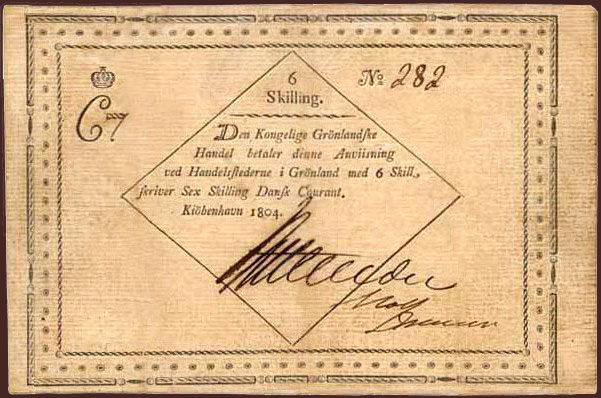 6
Skilling.
No 282
C7
Den Kongelige Grönlandske
Handel betaler dinne Anviisning
ved Handelsstederne i Grönland med 6 Skill.,
skriver Sex Skilling Dansk Courant.
Kiöbenhavn 1804.